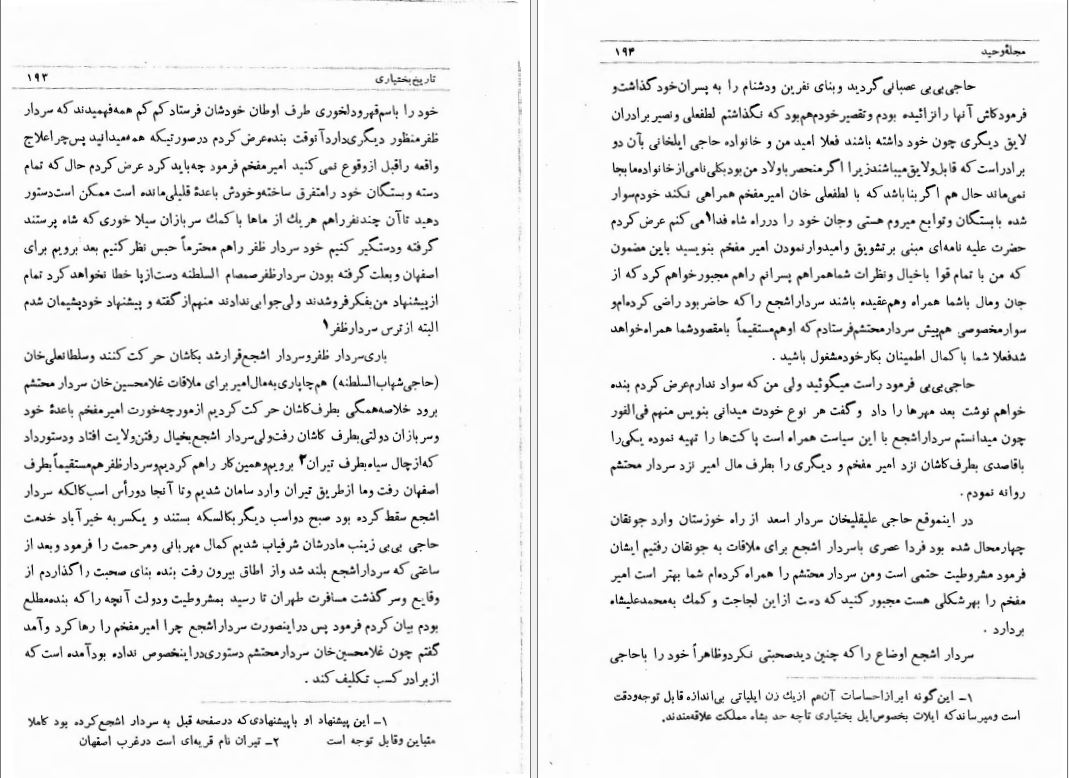 تاریخ بختیاری ۱۹۳
خود را باسم قهرودلخوری طرف اوطان خودشان فرستاد کم کم همه فهمیدند که سردار
ظفر منظور دیگری دارد آنوقت بنده عرض کردم در صورتیکه همه میدانید پس چرا علاج
واقعه را قبل از وقوع نمی کنید امیر مفخم فرمود چه باید کرد عرض کردم حال که تمام
دسته و بستگان خود را متفرق ساخته و خودش باعدهٔ قلیلی مانده است ممکن است دستور
دهید تا آن چند نفر راهم هریك از ماها با کمك سربازان سیلا خوری که شاه پرستند
گرفته و دستگیر کنیم خود سردار ظفر راهم محترماً حبس نظر کنیم بعد برویم برای
اصفهان و بعلت گرفته بودن سردار ظفر صمصام السلطنه دست از پا خطا نخواهد کرد تمام
از پیشنهاد من بفکر فرو شدند ولی جوابی ندادند منهم از گفته و پیشنهاد خود پشیمان شدم
البته از ترس سردار ظفر۱
باری سردار ظفر و سردار اشجع قرار شد بکاشان حرکت کنند و سلطانعلی خان
(حاجی شهاب السلطنه) هم چاپاری به مال امیر برای ملاقات غلامحسین خان سردار محتشم
برود خلاصه همگی بطرف کاشان حرکت کردیم از مورچه خورت امیر مفخم باعدهٔ خود
و سربازان دولتی بطرف کاشان رفت ولی سردار اشجع بخیال رفتن ولایت افتاد و دستور داد
که از چال سیاه بطرف تیران۲ برویم و همین کار راهم کردیم و سردار ظفر هم مستقیماً بطرف
اصفهان رفت و ما از طریق تیران وارد سامان شدیم و تا آنجا دو رأس اسب کالکه سردار
اشجع سقط کرده بود صبح دو اسب دیگر بکالسکه بستند و یکسر به خیر آباد خدمت
حاجی بی بی زینب مادرشان شرفیاب شدیم کمال مهربانی و مرحمت را فرمود و بعد از
ساعتی که سردار اشجع بلند شد و از اطاق بیرون رفت بنده بنای صحبت را گذاردم از
وقایع و سرگذشت مسافرت طهران تا رسید بمشروطیت و دولت آنچه را که بنده مطلع
بودم بیان کردم فرمود پس در اینصورت سردار اشجع چرا امیر مفخم را رها کرد و آمد
گفتم چون غلامحسین خان سردار محتشم دستوری در اینخصوص نداده بود آمده است که
از برادر کسب تکلیف کند .
۱ـ این پیشنهاد او با پیشنهادی که در صفحه قبل به سردار اشجع کرده بود کاملا
متباین و قابل توجه است ۲ـ تیران نام قریه‌ای است در غرب اصفهان
مجلهٔ وحید ۱۹۴
حاجی بی بی عصبانی گردید و بنای نفرین و دشنام را به پسران خود گذاشت و
فرمود کاش آنها را نزائیده بودم و تقصیر خودم هم بود که نگذاشتم لطفعلی و نصیر برادران
لایق دیگری چون خود داشته باشند فعلا امید من و خانواده حاجی ایلخانی بآن دو
برادر است که قابل ولایق میباشند زیرا اگر منحصر باولاد من بود بکلی نامی از خانواده ما بجا
نمی ماند حال هم اگر بنا باشد که با لطفعلی خان امیر مفخم همراهی نکند خودم سوار
شده بابستگان و توابع میروم هستی و جان خود را در راه شاه فدا۱ می کنم عرض کردم
حضرت علیه نامه‌ای مبنی بر تشویق و امیدوار نمودن امیر مفخم بنویسید باین مضمون
که من با تمام قوا باخیال و نظرات شما همراهم پسرانم راهم مجبور خواهم کرد که از
جان و مال باشما همراه وهم عقیده باشند سردار اشجع را که حاضر بود راضی کرده‌ام و
سوار مخصوصی هم پیش سردار محتشم فرستادم که او هم مستقیماً بامقصود شما همراه خواهد
شد فعلا شما با کمال اطمینان بکار خود مشغول باشید .
حاجی بی بی فرمود راست میگوئید ولی من که سواد ندارم عرض کردم بنده
خواهم نوشت بعد مهرها را داد و گفت هر نوع خودت میدانی بنویس منهم فی الفور
چون میدانستم سردار اشجع با این سیاست همراه است پاکت‌ها را تهیه نموده یکی را
باقاصدی بطرف کاشان نزد امیر مفخم و دیگری را بطرف مال امیر نزد سردار محتشم
روانه نمودم .
در اینموقع حاجی علیقلیخان سردار اسعد از راه خوزستان وارد جونقان
چهارمحال شده بود فردا عصری باسردار اشجع برای ملاقات به جونقان رفتیم ایشان
فرمود مشروطیت حتمی است ومن سردار محتشم را همراه کرده‌ام شما بهتر است امیر
مفخم را بهر شکلی هست مجبور کنید که دست از این لجاجت و کمك به محمد علیشاه
بردارد .
سردار اشجع اوضاع را که چنین دید صحبتی نکرد و ظاهراً خود را باحاجی
۱ـ این گونه ابراز احساسات آن هم از یك زن ایلیاتی بی اندازه قابل توجه و دقت
است و میرساند که ایلات بخصوص ایل بختیاری تا چه حد بشاه مملکت علاقه مندند.